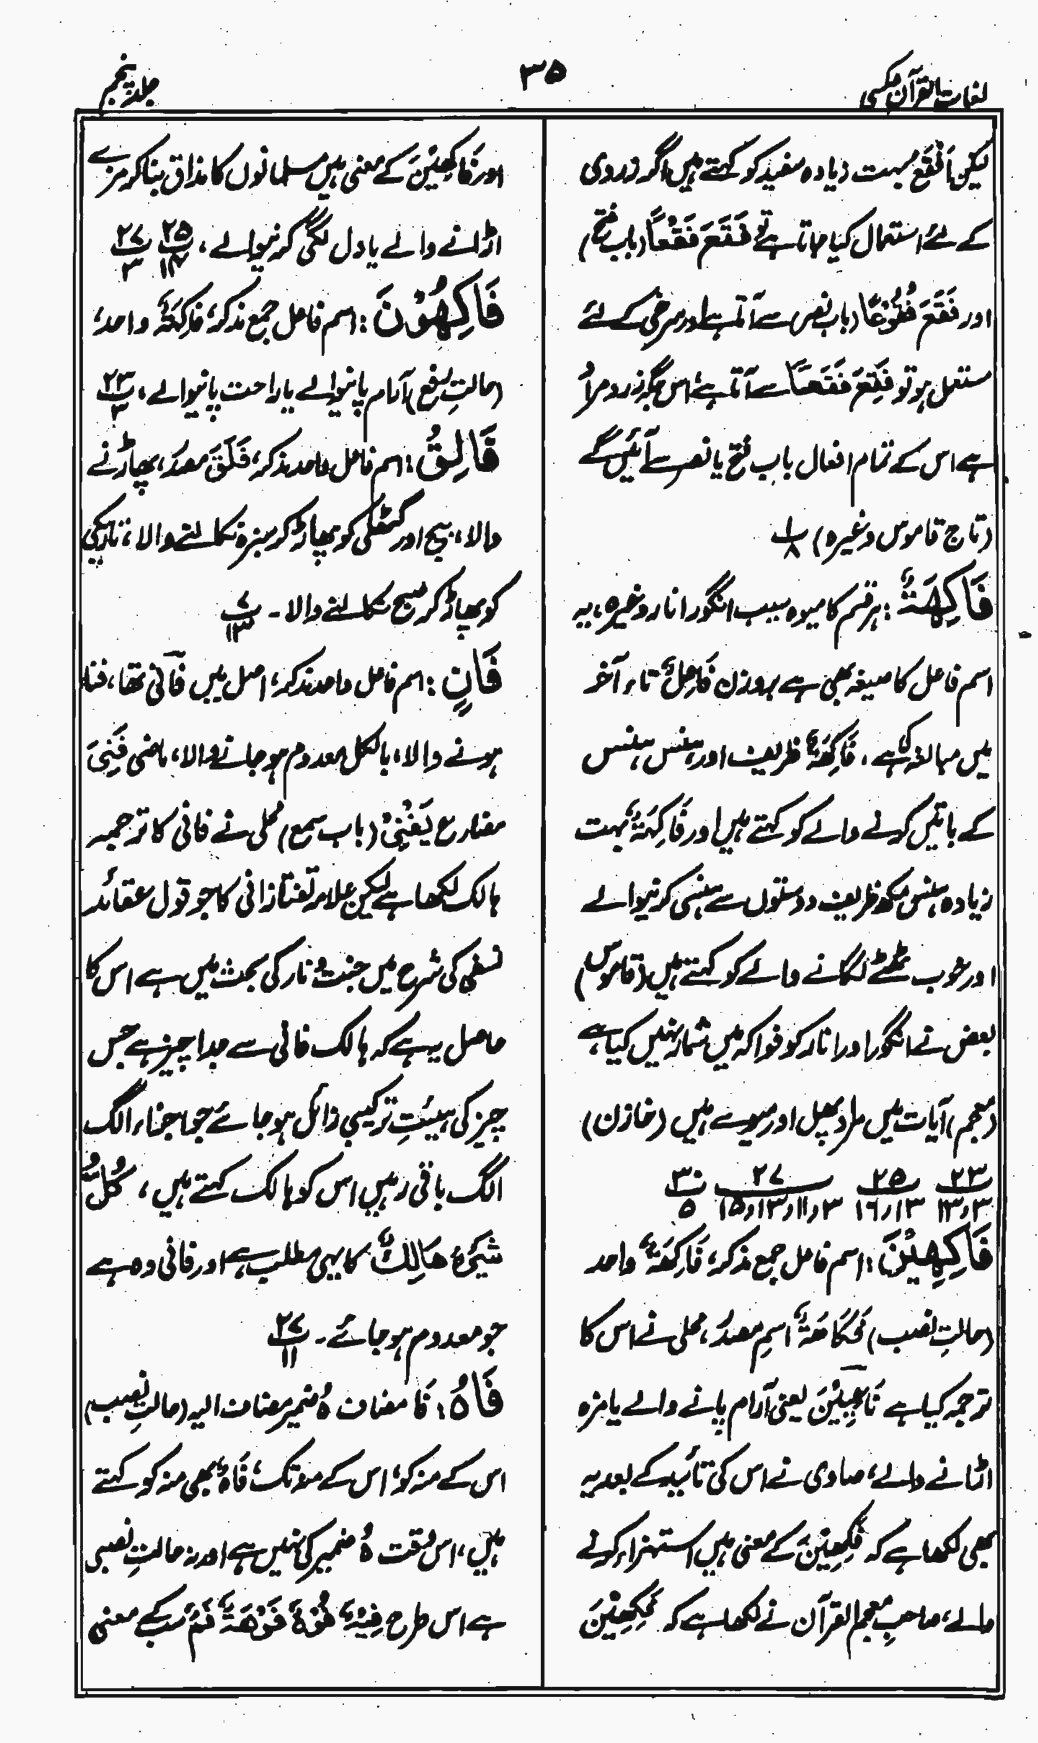 لغات القرآن عکسی
۳۵
جلد پنجم
لیکن اَفْقَع بہت زیادہ سفید کو کہتے ہیں اگر زردی
کے لئے استعمال کیا جاتا ہے تو فَقَعَ فَقْعاً (باب فتح)
اور فَقَعَ فُقُوْعًا (باب نصر) سے آتا ہے اور سرخی کے لئے
مستعمل ہو تو فَقِعَ فَقَعاً سے آتا ہے، اس جگہ زرد مراد
ہے اس کے تمام افعال باب فتح یا نصر سے آئیں گے
(تاج قاموس وغیرہ) ۱/۸
فَاكِهَةٌ : ہر قسم کا میوہ سیب انگور انار وغیرہ، یہ
اسم فاعل کا صیغہ بھی ہے بروزن فَاعِلٌ تاء آخر
میں مبالغہ کی ہے، فَاكِهَةٌ ظریف اور ہنس ہنس
کے باتیں کرنے والے کو کہتے ہیں اور فَاكِهَةٌ بہت
زیادہ ہنس مکھ ظریف دوستوں سے ہنسی کرنیوالے
اور خوب ٹھٹھے لگانے والے کو کہتے ہیں (قاموس)
بعض نے انگور اور انار کو فواکہ میں شمار نہیں کیا ہے
(معجم) آیات میں مراد پھل اور میوے ہیں (خازن)
۲۳ ۲۵ ۲۷ ۳۰
۱۳،۳ ۱۶،۱۳ ۱۵،۱۳،۱۱،۳ ۵
فَاكِهِيْنَ : اسم فاعل جمع مذکر، فَاكِهَةٌ واحد
(حالتِ نصب) فُكَاهَةٌ اسمِ مصدر، محلی نے اس کا
ترجمہ کیا ہے نَاعِمِيْنَ یعنی آرام پانے والے یا مزہ
اڑانے والے، صاوی نے اس کی تائید کے بعد یہ
بھی لکھا ہے کہ فَكِهِيْنَ کے معنی ہیں استہزاء کرنے
والے، صاحبِ معجم القرآن نے لکھا ہے کہ فَكِهِيْنَ
اور فَاكِهِيْنَ کے معنی ہیں مسلمانوں کا مذاق بنا کر مزے
اڑانے والے یا دل لگی کرنیوالے، ۲۵/۱۴ ۲۷/۳
فَاكِهُوْنَ : اسم فاعل جمع مذکر، فَاكِهَةٌ واحد،
(حالتِ رفع) آرام پانیوالے یا راحت پانیوالے، ۲۳/۳
فَالِقُ : اسم فاعل واحد مذکر، فَلَقَ مصدر، پھاڑنے
والا، بیج اور گٹھلی کو پھاڑ کر سبزہ نکالنے والا، تاریکی
کو پھاڑ کر صبح نکالنے والا۔ ۷/۱۳
فَانٍ : اسم فاعل واحد مذکر، اصل میں فَانِی تھا، فنا
ہونے والا، بالکل معدوم ہو جانے والا، ماضی فَنِيَ
مضارع يَفْنِيْ (باب سمع) محلی نے فانی کا ترجمہ
ہالک لکھا ہے لیکن علامہ تفتازانی کا جو قول عقائد
نسفی کی شرح میں جنت و نار کی بحث میں ہے اس کا
حاصل یہ ہے کہ ہالک فانی سے جدا چیز ہے جس
چیز کی ہیئتِ ترکیبی زائل ہو جائے جو اجزاء الگ
الگ باقی رہیں اس کو ہالک کہتے ہیں، كُلُّ
شَيْءٍ هَالِكٌ کا یہی مطلب ہے اور فانی وہ ہے
جو معدوم ہو جائے۔ ۲۷/۱۱
فَاهُ : فَا مضاف ہُ ضمیر مضاف الیہ (حالتِ نصب)
اس کے منہ کو، اس کے منہ تک، فَاہُ بھی منہ کو کہتے
ہیں، اس وقت ہُ ضمیر کی نہیں ہے اور نہ حالتِ نصبی
ہے اس طرح فِيْهٌ فُوْهٌ فَوْهَةٌ فَمٌ سب کے معنی